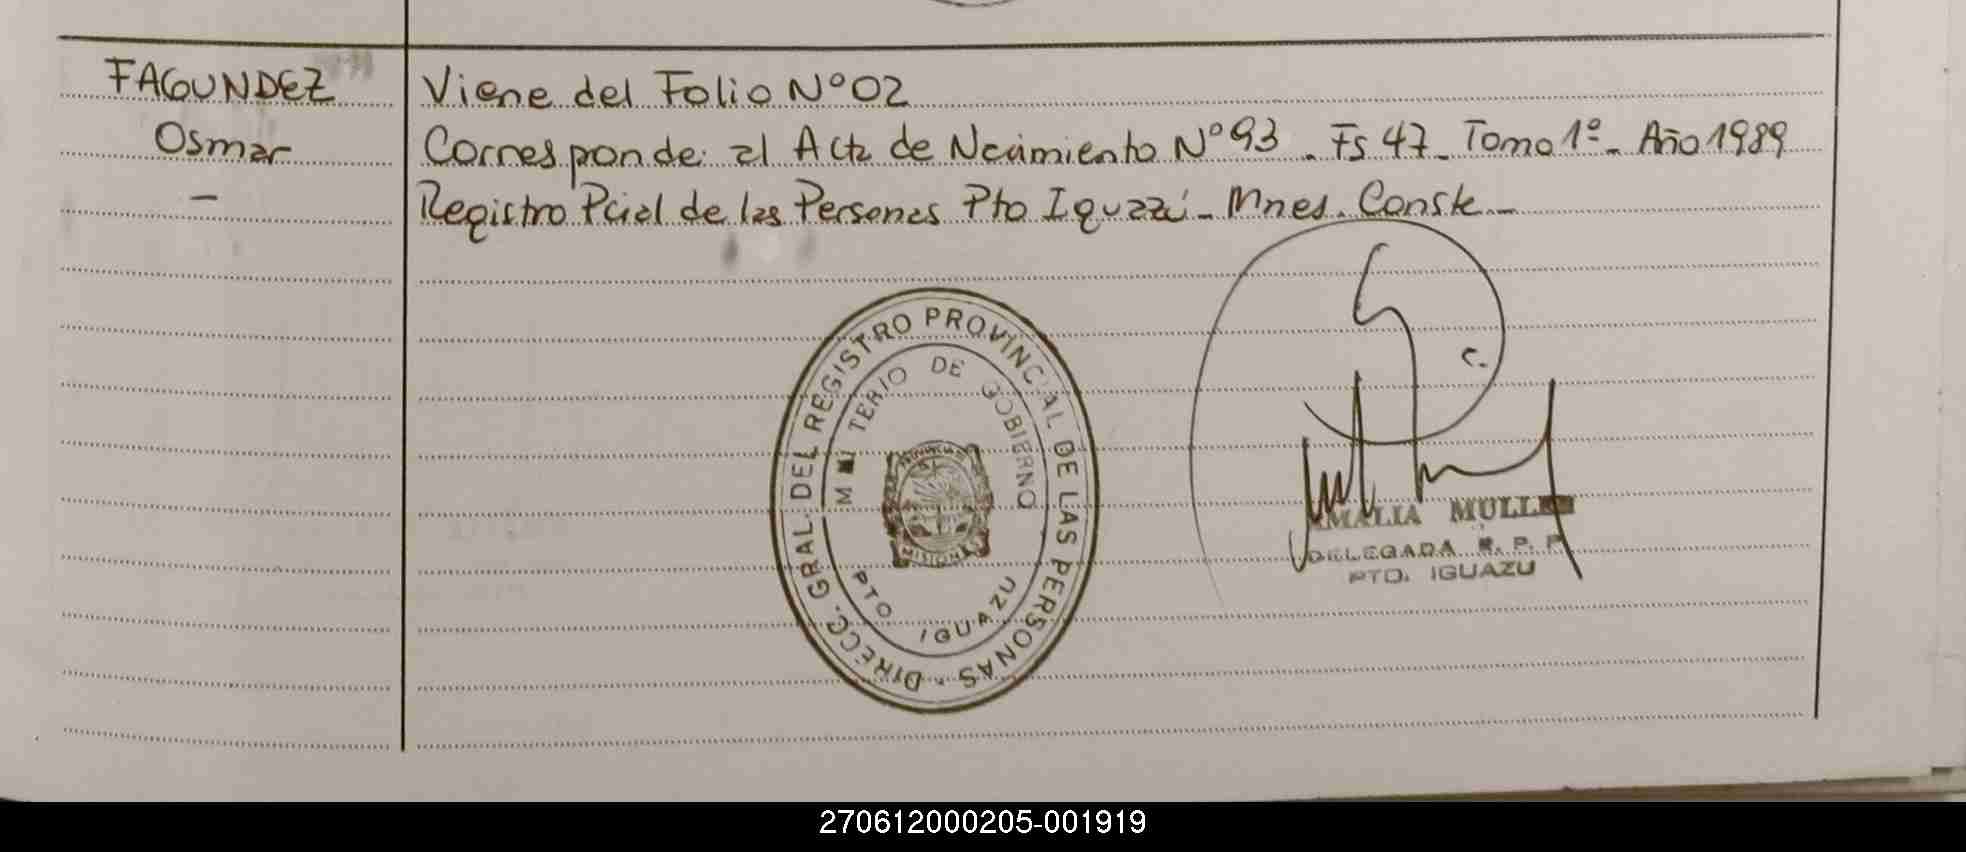 FAGUNDEZ
Osmar
-
Viene del Folio Nº 02
Corresponde: al Acta de Ncimiento Nº 93. Fs 47- Tomo 1º- Año 1989
Registro Pcial de las Personas Pto Iguazú- Mnes. Conste-
DIRECC. GRAL. DEL REGISTRO PROVINCIAL DE LAS PERSONAS
DE GOBIERNO
MISIONES
PTO IGUAZU
AMALIA MULLER
DELEGADA R. P. P.
PTO. IGUAZU
270612000205-001919